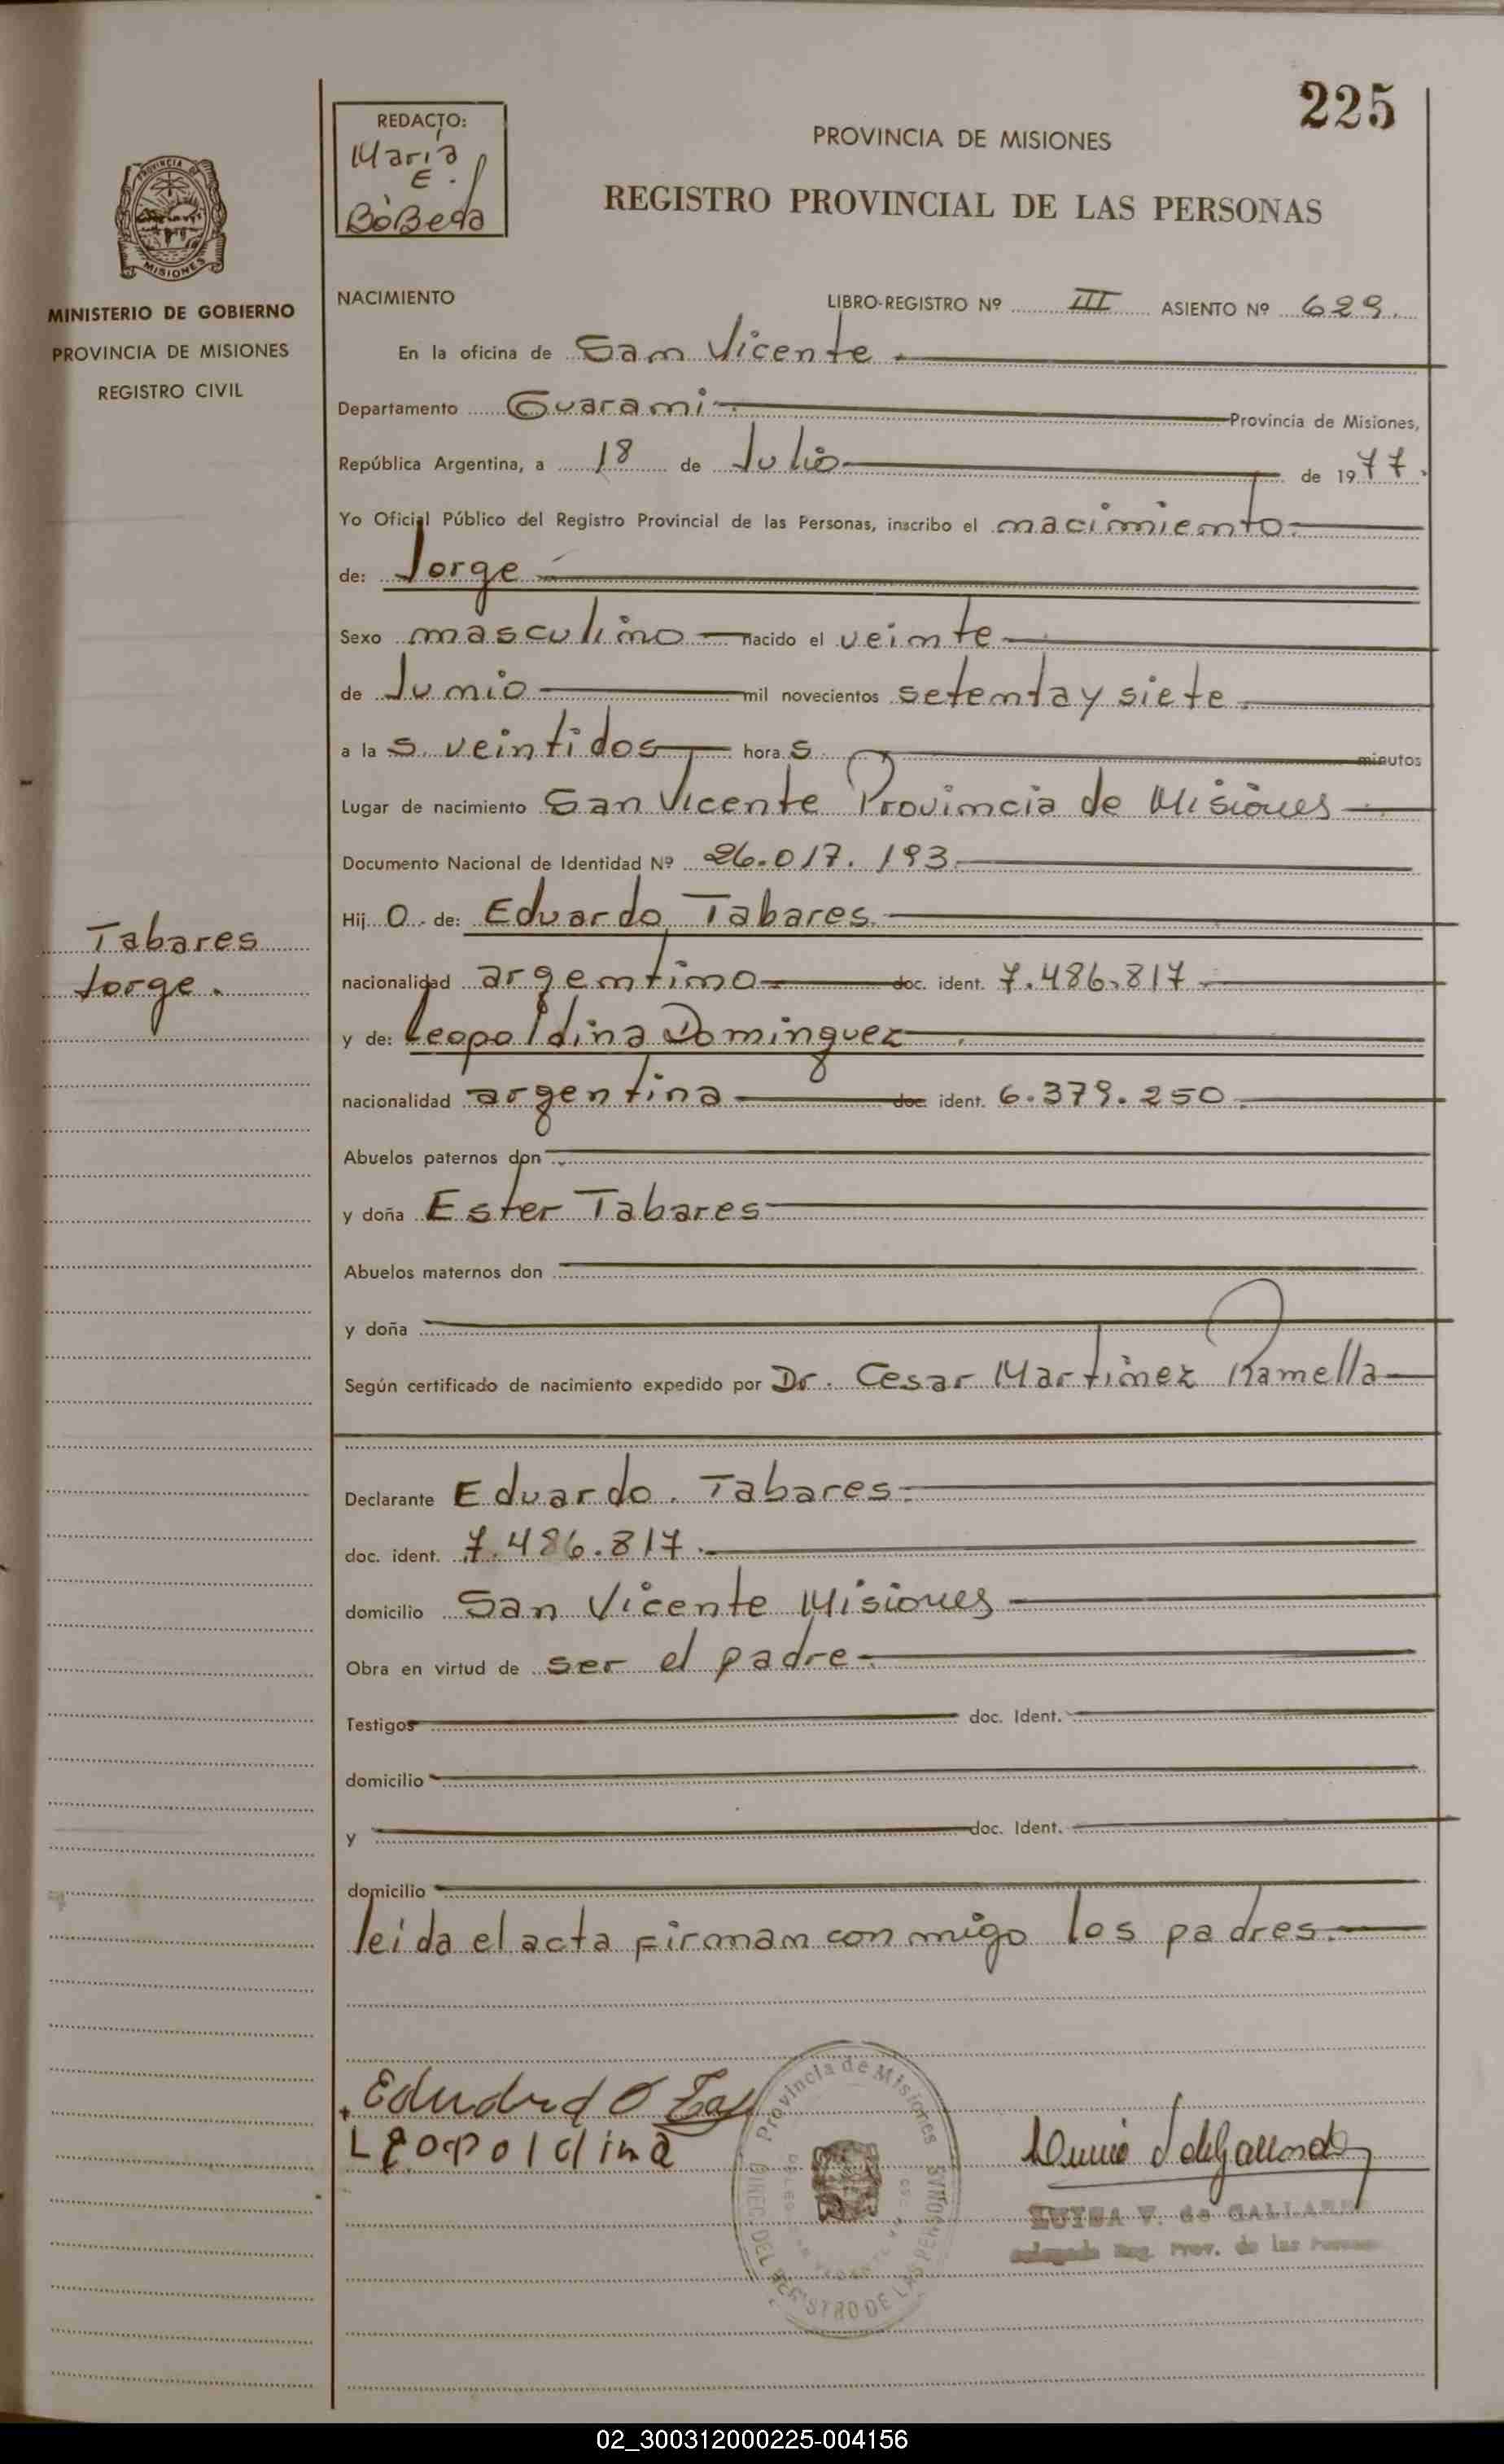 225
REDACTO:
Maria
E.
BóBeda
PROVINCIA DE MISIONES
REGISTRO PROVINCIAL DE LAS PERSONAS
PROVINCIA DE
MISIONES
MINISTERIO DE GOBIERNO
PROVINCIA DE MISIONES
REGISTRO CIVIL
NACIMIENTO LIBRO-REGISTRO Nº III ASIENTO Nº 629.
En la oficina de San Vicente
Departamento Guarani Provincia de Misiones,
República Argentina, a 18 de Julio de 1977.
Yo Oficial Público del Registro Provincial de las Personas, inscribo el nacimiento
de: Jorge
Sexo masculino nacido el veinte
de Junio mil novecientos setenta y siete.
a la s. veintidos hora s. minutos
Lugar de nacimiento San Vicente Provincia de Misiones
Documento Nacional de Identidad Nº 26.017.193.
Hij o de: Eduardo Tabares.
Tabares
Jorge.
nacionalidad argentino doc. ident. 7.486.817
y de: Leopoldina Dominguez
nacionalidad argentina doc ident. 6.379.250.
Abuelos paternos don
y doña Ester Tabares
Abuelos maternos don
y doña
Según certificado de nacimiento expedido por Dr. Cesar Martinez Ramella
Declarante Eduardo. Tabares.
doc. ident. 7.486.817.
domicilio San Vicente Misiones
Obra en virtud de ser el padre.
Testigos doc. Ident.
domicilio
y doc. Ident.
domicilio
leida el acta firman con migo los padres.
Eduardo Tab
Leopoldina
Provincia de Misiones
DIREC. DEL REGISTRO DE LAS PERSONAS
LUISA V. de GALLARDO
Reg. Prov. de las Personas
02_300312000225-004156